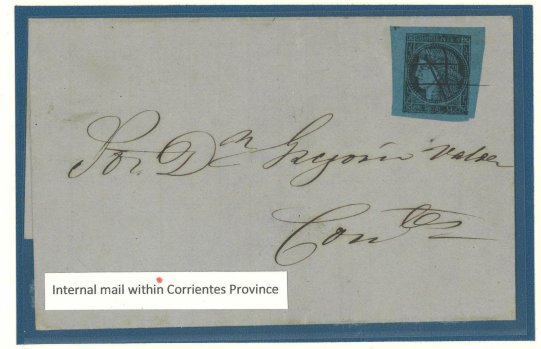 Sor. Dn Gregorio Valdez
Contes
Internal mail within Corrientes Province